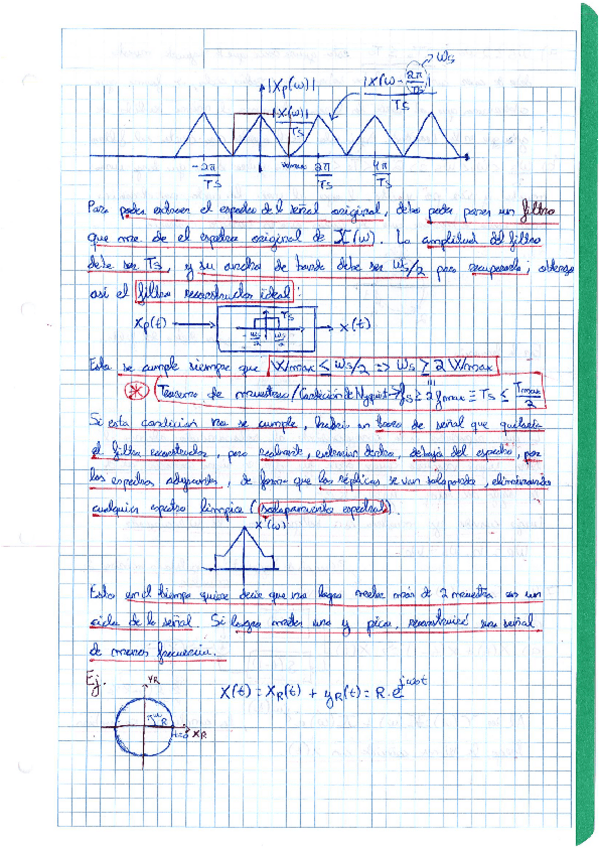 |Xp(ω)|
|X(ω)|/Ts
|X(ω - 2π/Ts)|/Ts → ωs
-2π/Ts ωmax 2π/Ts 4π/Ts
Para poder extraer el espectro de l señal original, debo poder poner un filtro
que me de el espectro original de X(ω). La amplitud del filtro
debe ser Ts, y su ancho de banda debe ser ωs/2 para recuperarla; obtengo
así el filtro reconstructor ideal:
Xp(t) → Ts -ωs/2 ωs/2 → x(t)
Esto se cumple siempre que Wmax ≤ ωs/2 => ωs ≥ 2 Wmax
* Teorema de muestreo/Condición de Nyquist → fs ≥ 2 fmax ≡ Ts ≤ Tmax/2
Si esta condición no se cumple, habría un trozo de señal que quitaría
el filtro reconstructor, pero realmente, estarían dentro, debajo del espectro, por
los espectros adyacentes, de forma que las réplicas se van solapando, eliminando
cualquier espectro limpio (solapamiento espectral).
X'(ω)
Esto en el tiempo quiere decir que no hago más de 2 muestra en un
ciclo de la señal. Si hago una y pico, reconstruiré una señal
de menor frecuencia.
Ej.
yR
R
t=0 xR
X(t) = XR(t) + yR(t) = R·e^jωot